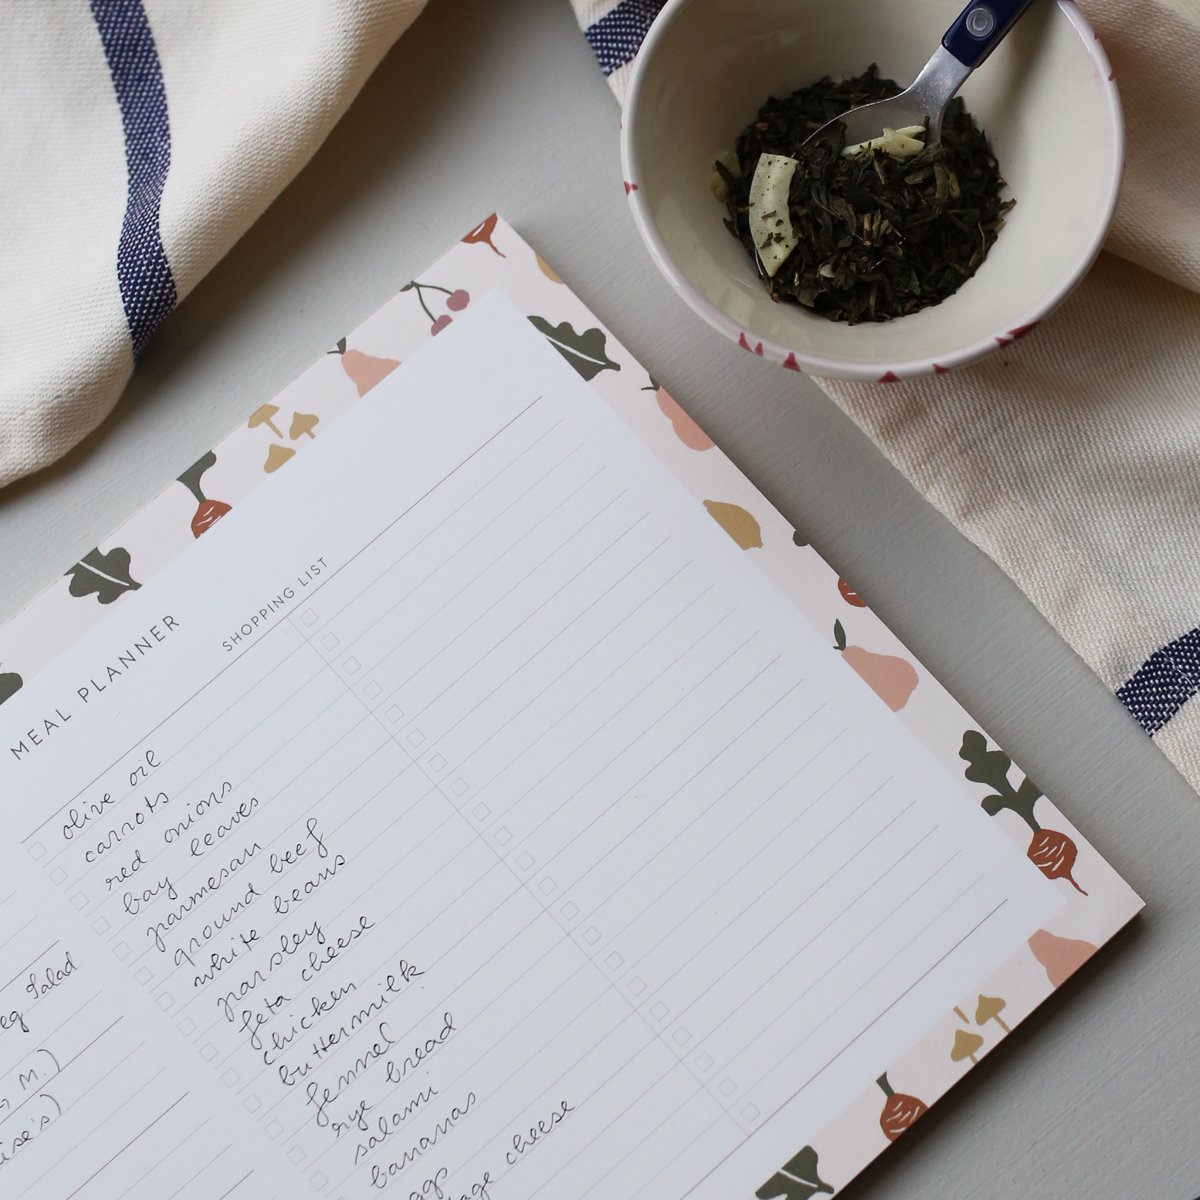 MEAL PLANNER
SHOPPING LIST
olive oil
carrots
red onions
bay leaves
parmesan
ground beef
white beans
parsley
feta cheese
chicken
buttermilk
fennel
rye bread
salami
bananas
cheese
Salad
M.)